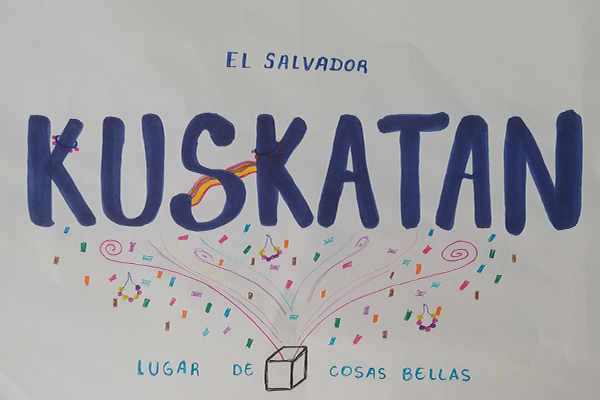 EL SALVADOR
KUSKATAN
LUGAR DE COSAS BELLAS